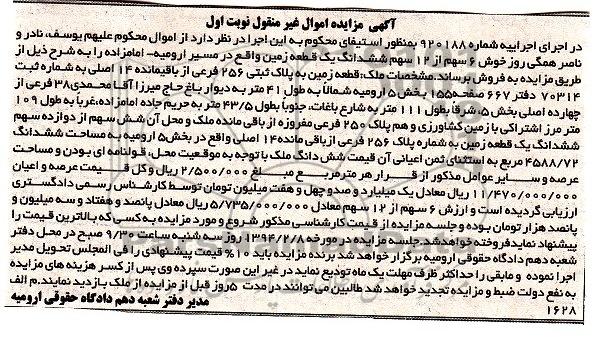 آگهی مزایده اموال غیر منقول نوبت اول
در اجرای اجراییه شماره ۹۲۰۱۸۸ بمنظور استیفای محکوم به این اجرا در نظر دارد از اموال محکوم علیهم یوسف، نادر و
ناصر همگی روز خوش ۶ سهم از ۱۲ سهم ششدانگ یک قطعه زمین واقع در مسیر ارومیه- امامزاده را به شرح ذیل از
طریق مزایده به فروش برساند. مشخصات ملک: قطعه زمین به پلاک ثبتی ۲۵۶ فرعی از باقیمانده ۱۴ اصلی به شماره ثبت
۷۰۳۱۴ دفتر ۶۶۷ صفحه۱۵۵ بخش۵ ارومیه شمالاً به طول ۴۱ متر به دیوار باغ حاج میرزا آقا محمدی۳۸ فرعی از
چهارده اصلی بخش ۵، شرقاً بطول ۱۱۱ متر به شارع باغات، جنوباً بطول ۴۳/۵ متر به حریم جاده امامزاده، غرباً به طول ۱۰۹
متر مرز اشتراکی با زمین کشاورزی و هم پلاک ۲۵۰ فرعی مفروزه از باقی مانده ملک و محل آن شش سهم از دوازده سهم
ششدانگ یک قطعه زمین به شماره پلاک ۲۵۶ فرعی از باقی مانده۱۴ اصلی واقع در بخش۵ ارومیه به مساحت ششدانگ
۴۵۸۸/۷۲ مربع به استثنای ثمن اعیانی آن قیمت شش دانگ ملک با توجه به موقعیت محل، قولنامه ای بودن و مساحت
عرصه و سایر عوامل مذکور از قرار هر مترمربع مبلغ ۲/۵۰۰/۰۰۰ ریال و کل قیمت عرصه و اعیان
۱۱/۴۷۰/۰۰۰/۰۰۰ ریال معادل یک میلیارد و صدو چهل و هفت میلیون تومان توسط کارشناس رسمی دادگستری
ارزیابی گردیده است و ارزش ۶ سهم از ۱۲ سهم معادل ۵/۷۳۵/۰۰۰/۰۰۰ ریال معادل پانصد و هفتاد و سه میلیون و
پانصد هزار تومان بوده و جلسه مزایده از قیمت کارشناسی مذکور شروع و مورد مزایده به کسی که بالاترین قیمت را
پیشنهاد نماید فروخته خواهد شد. جلسه مزایده در مورخه ۱۳۹۴/۲/۸ روز سه شنبه ساعت ۹/۳۰ صبح در محل دفتر
شعبه دهم دادگاه حقوقی ارومیه برگزار خواهد شد برنده مزایده باید ۱۰% قیمت پیشنهادی را فی المجلس تحویل مدیر
اجرا نموده و مابقی را حداکثر ظرف مهلت یک ماه تودیع نماید در غیر این صورت سپرده وی پس از کسر هزینه های مزایده
به نفع دولت ضبط و مزایده تجدید خواهد شد طالبین می توانند در مدت ۵روز قبل از مزایده از ملک بازدید نمایند.م الف
۱۶۲۸
مدیر دفتر شعبه دهم دادگاه حقوقی ارومیه